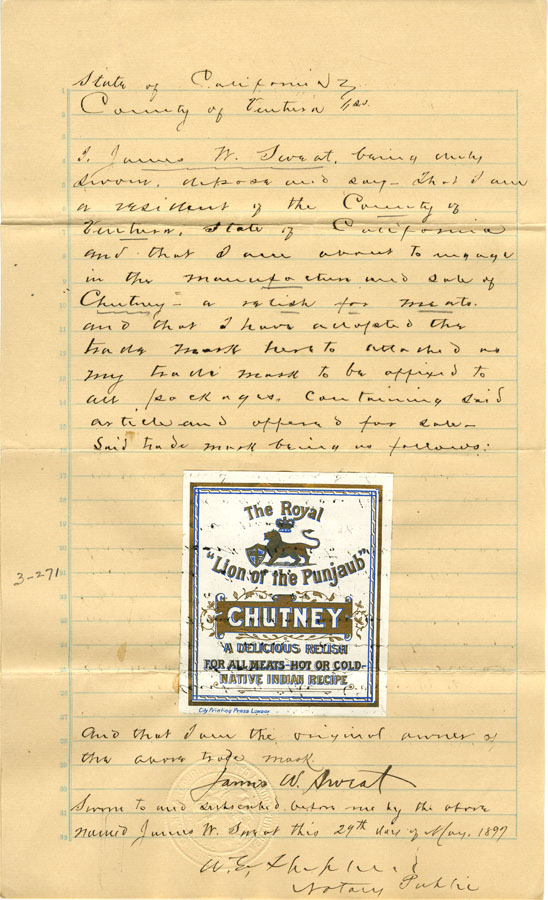 State of California
County of Ventura ss.
I, James W. Sweat, being duly
sworn, depose and say - That I am
a resident of the County of
Ventura, State of California
and that I am about to engage
in the manufacture and sale of
Chutney - a relish for meats.
and that I have adopted the
trade mark hereto attached as
my trade mark to be affixed to
all packages, Containing said
article and offered for sale -
Said trade mark being as follows:
The Royal
"Lion of the Punjaub"
CHUTNEY
A DELICIOUS RELISH
FOR ALL MEATS-HOT OR COLD-
NATIVE INDIAN RECIPE
City Printing Press London
3-271
And that I am the original owner of
the above trade mark.
James W. Sweat
Sworn to and subscribed before me by the above
named James W. Sweat this 29th day of May, 1897
Notary Public